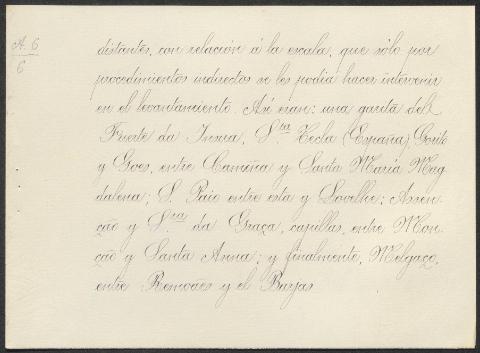 A. 6
6
distantes, con relación á la escala, que sólo por
procedimientos indirectos se les podia hacer intervenir
en el levantamiento. Asi eran: una garita del
Fuerte da Insua, S.ta Tecla (España), Gorito
y Goes, entre Camiña y Santa María Mag
dalena; S. Paio entre esta y Lovelhe; Assun-
ção y S.ra da Graça, capillas, entre Mon-
ção y Santa Anna; y finalmente, Melgaço,
entre Remoães y el Barjas